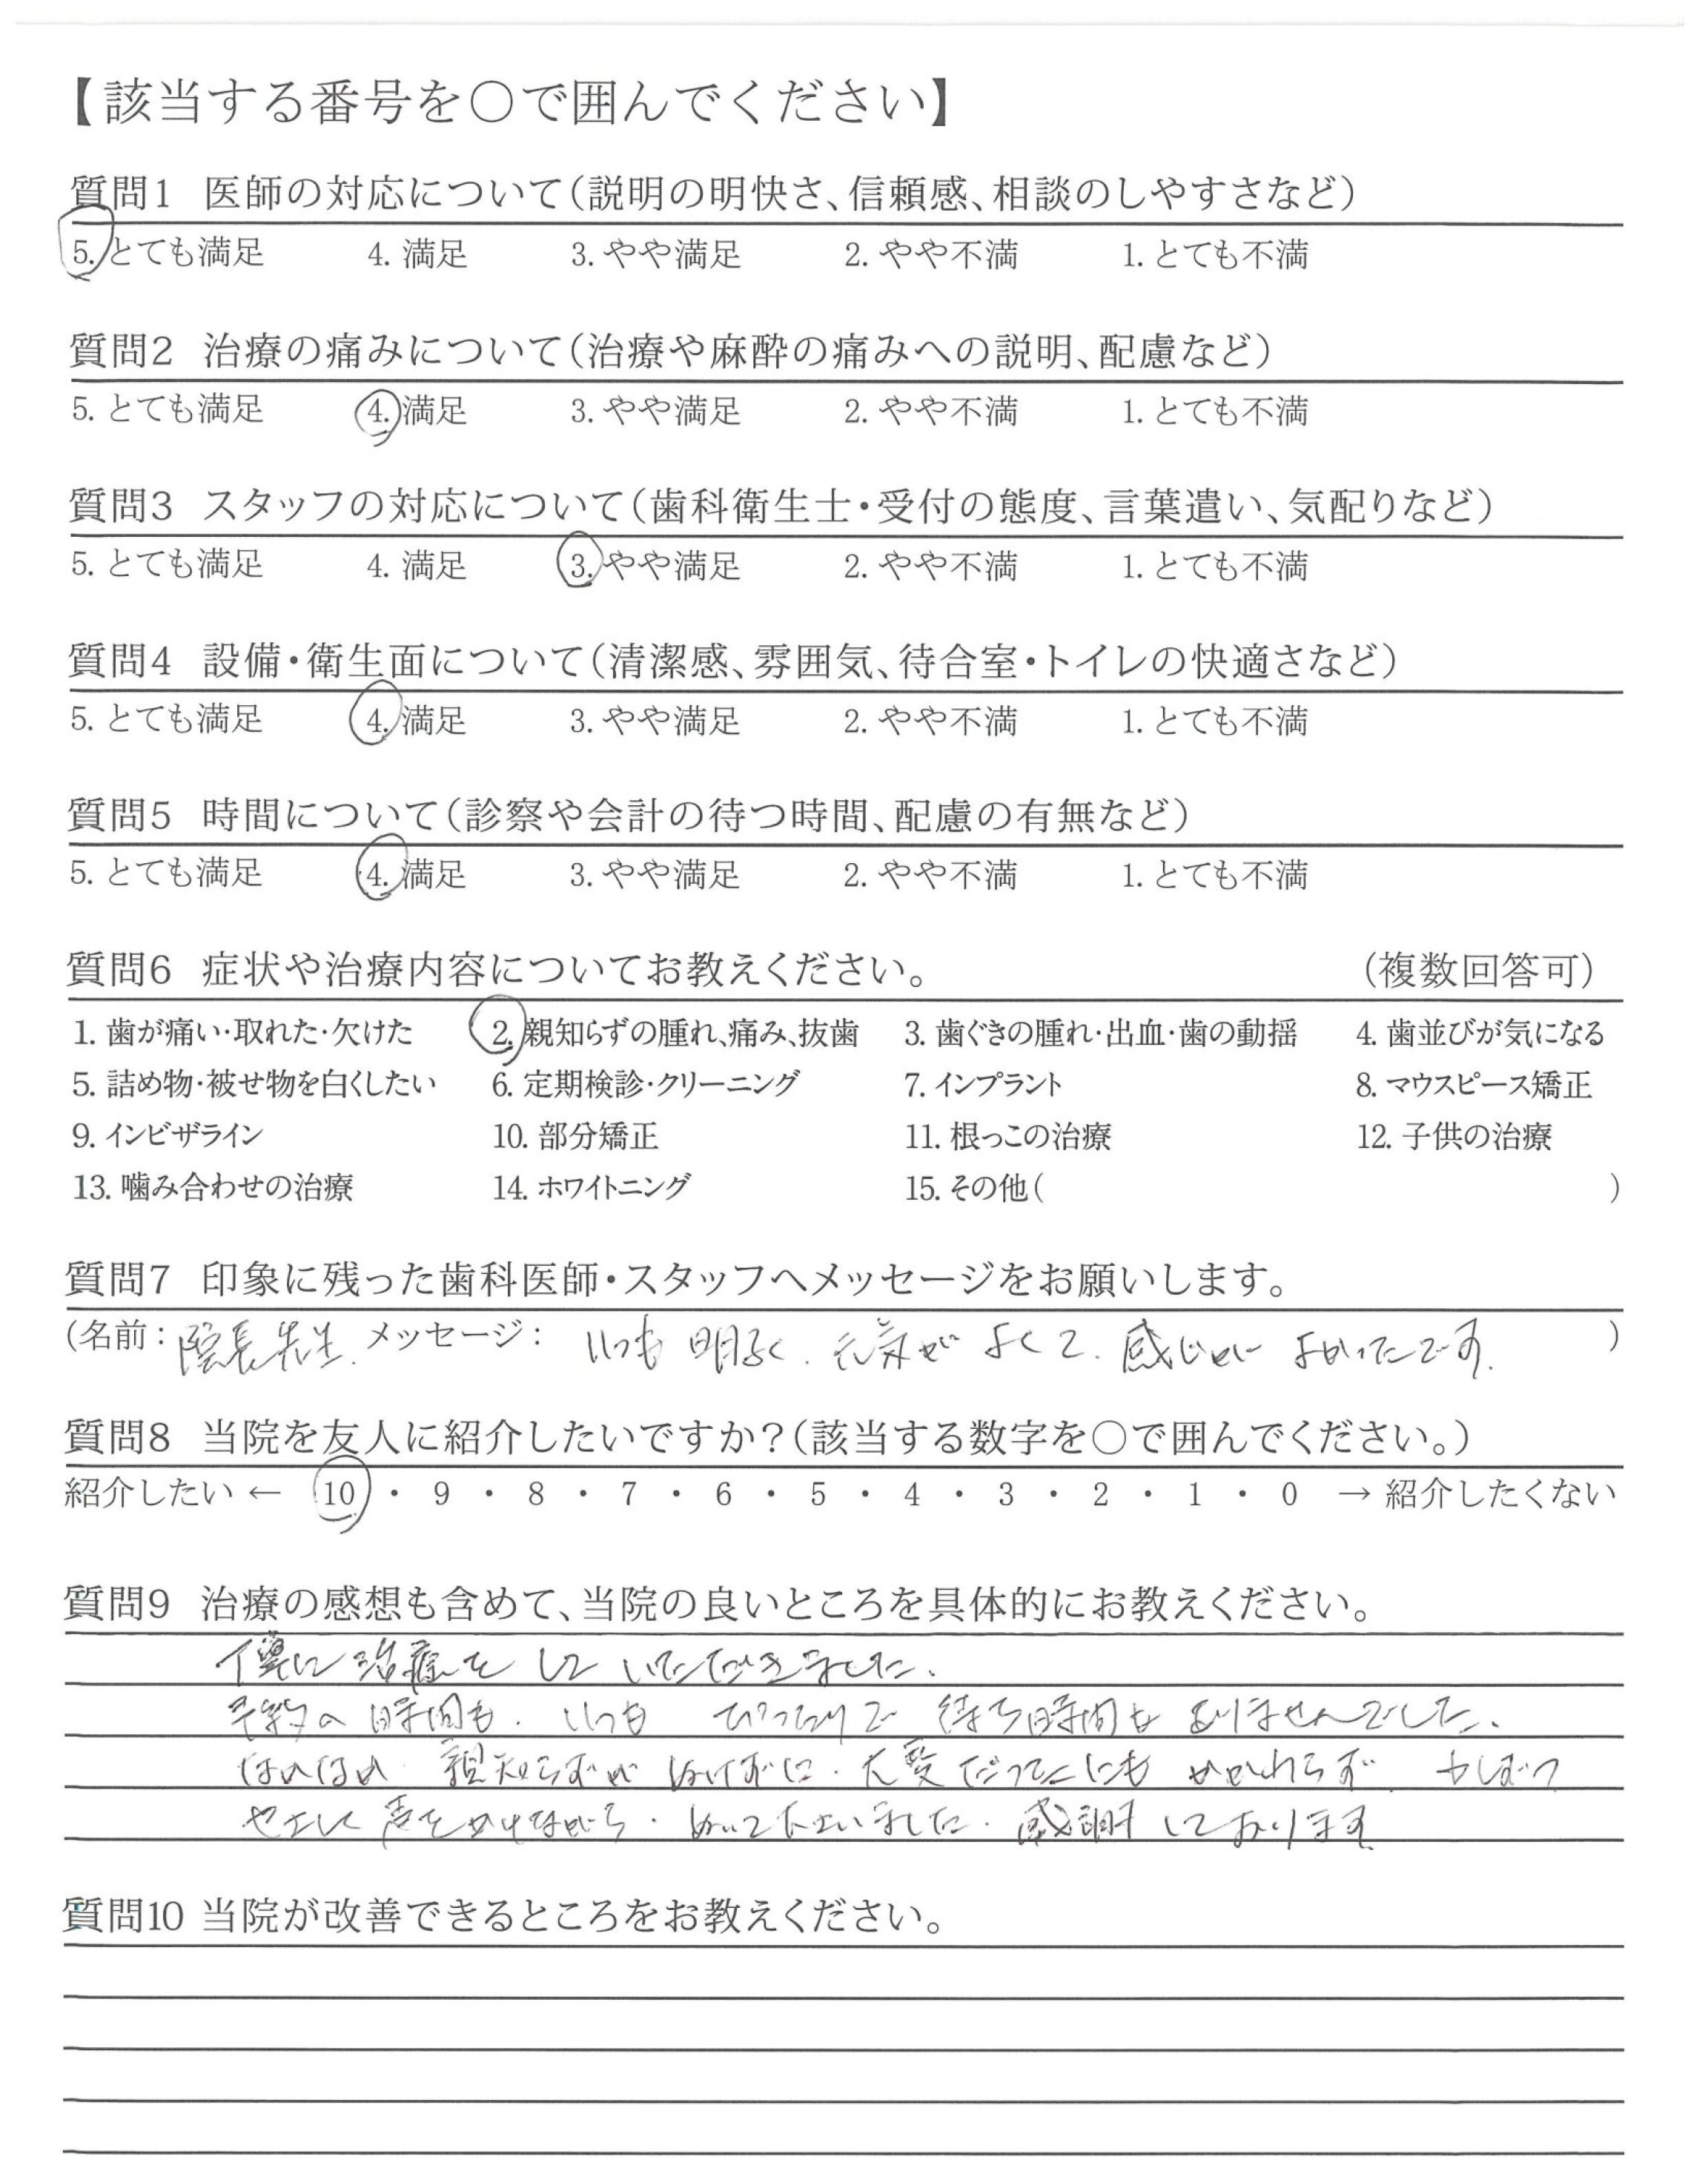 【該当する番号を○で囲んでください】
質問1 医師の対応について(説明の明快さ、信頼感、相談のしやすさなど)
5. とても満足 4. 満足 3. やや満足 2. やや不満 1. とても不満
質問2 治療の痛みについて(治療や麻酔の痛みへの説明、配慮など)
5. とても満足 4. 満足 3. やや満足 2. やや不満 1. とても不満
質問3 スタッフの対応について(歯科衛生士・受付の態度、言葉遣い、気配りなど)
5. とても満足 4. 満足 3. やや満足 2. やや不満 1. とても不満
質問4 設備・衛生面について(清潔感、雰囲気、待合室・トイレの快適さなど)
5. とても満足 4. 満足 3. やや満足 2. やや不満 1. とても不満
質問5 時間について(診察や会計の待つ時間、配慮の有無など)
5. とても満足 4. 満足 3. やや満足 2. やや不満 1. とても不満
質問6 症状や治療内容についてお教えください。 (複数回答可)
1. 歯が痛い・取れた・欠けた 2. 親知らずの腫れ、痛み、抜歯 3. 歯ぐきの腫れ・出血・歯の動揺 4. 歯並びが気になる
5. 詰め物・被せ物を白くしたい 6. 定期検診・クリーニング 7. インプラント 8. マウスピース矯正
9. インビザライン 10. 部分矯正 11. 根っこの治療 12. 子供の治療
13. 噛み合わせの治療 14. ホワイトニング 15. その他( )
質問7 印象に残った歯科医師・スタッフへメッセージをお願いします。
(名前:院長先生. メッセージ: いつも 明るく. 元気が よくて. 感じが よかったです. )
質問8 当院を友人に紹介したいですか?(該当する数字を○で囲んでください。)
紹介したい ← 10 ・ 9 ・ 8 ・ 7 ・ 6 ・ 5 ・ 4 ・ 3 ・ 2 ・ 1 ・ 0 → 紹介したくない
質問9 治療の感想も含めて、当院の良いところを具体的にお教えください。
治療を して いただきました.
予約の 時間も. いつも ぴったりで 待ち時間も ありませんでした.
親知らずが ぬけずに. 大変だったにも かかわらず 少しずつ
声をかけながら. ぬいて下さいました. 感謝 しております
質問10 当院が改善できるところをお教えください。